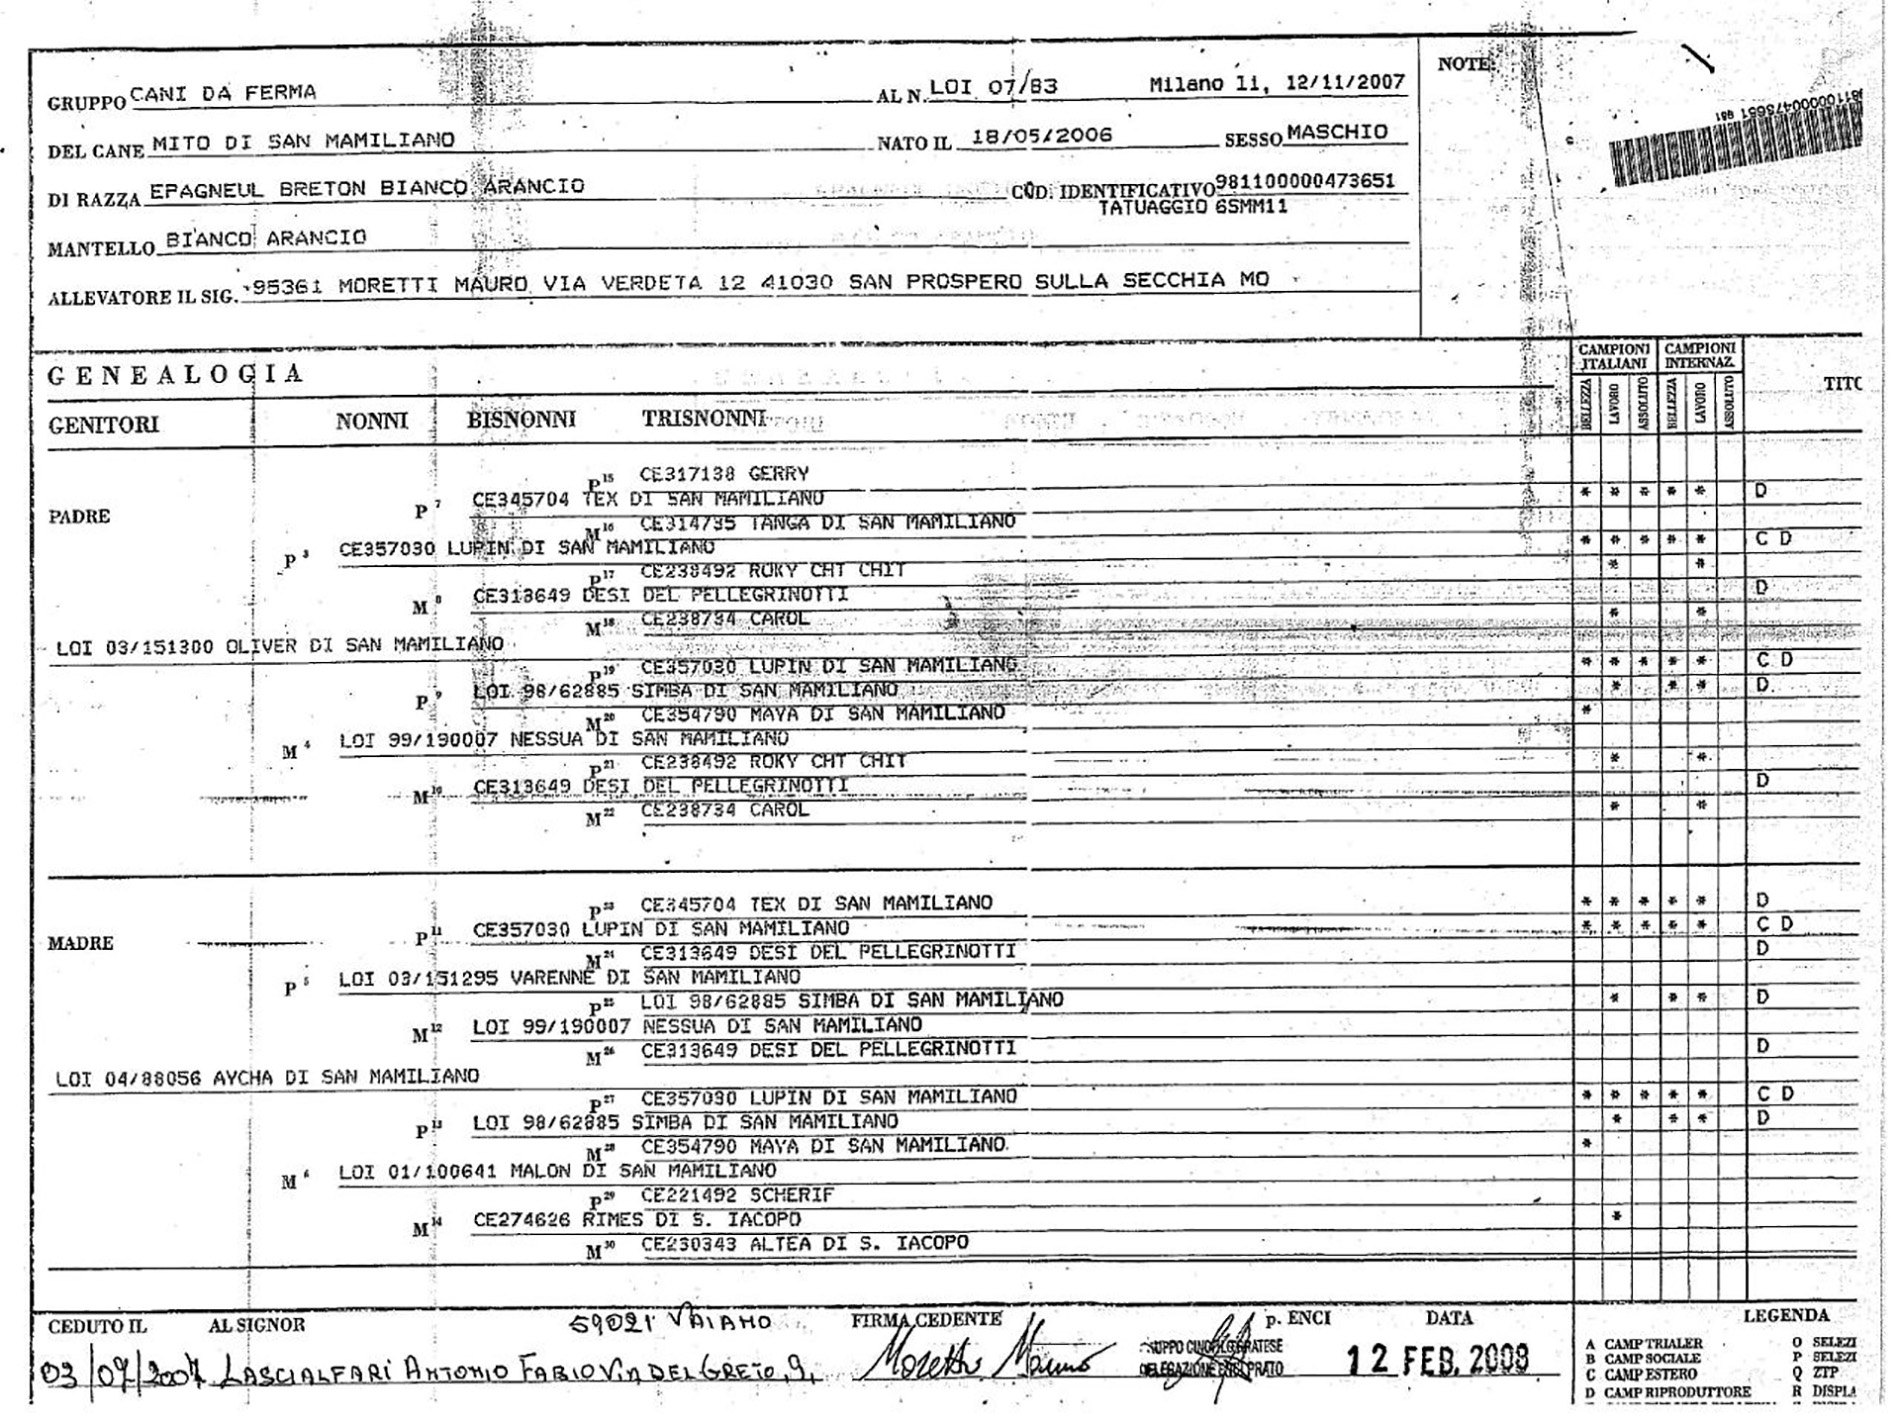 GRUPPO CANI DA FERMA AL N. LOI 07/83 Milano li, 12/11/2007 NOTE:
981100000473651 981
DEL CANE MITO DI SAN MAMILIANO NATO IL 18/05/2006 SESSO MASCHIO
DI RAZZA EPAGNEUL BRETON BIANCO ARANCIO COD. IDENTIFICATIVO 981100000473651
TATUAGGIO 6SMM11
MANTELLO BIANCO ARANCIO
ALLEVATORE IL SIG. 95361 MORETTI MAURO VIA VERDETA 12 41030 SAN PROSPERO SULLA SECCHIA MO
CAMPIONI ITALIANI CAMPIONI INTERNAZ.
GENEALOGIA
BELLEZZA LAVORO ASSOLUTO BELLEZZA LAVORO ASSOLUTO
GENITORI NONNI BISNONNI TRISNONNI
P 15 CE317138 GERRY
PADRE P 7 CE345704 TEX DI SAN MAMILIANO * * * * * D
M 16 CE314735 TANGA DI SAN MAMILIANO
P 3 CE357030 LUPIN DI SAN MAMILIANO * * * * * C D
P 17 CE238492 ROKY CHT CHIT * *
M 8 CE313649 DESI DEL PELLEGRINOTTI D
M 18 CE238734 CAROL * *
LOI 03/151300 OLIVER DI SAN MAMILIANO
P 19 CE357030 LUPIN DI SAN MAMILIANO * * * * * C D
P 9 LOI 98/62885 SIMBA DI SAN MAMILIANO * * * D
M 20 CE354790 MAYA DI SAN MAMILIANO *
M 4 LOI 99/190007 NESSUA DI SAN MAMILIANO
P 21 CE238492 ROKY CHT CHIT * *
M 10 CE313649 DESI DEL PELLEGRINOTTI D
M 22 CE238734 CAROL * *
P 23 CE345704 TEX DI SAN MAMILIANO * * * * * D
MADRE P 11 CE357030 LUPIN DI SAN MAMILIANO * * * * * C D
M 24 CE313649 DESI DEL PELLEGRINOTTI D
P 5 LOI 03/151295 VARENNE DI SAN MAMILIANO
P 25 LOI 98/62885 SIMBA DI SAN MAMILIANO * * * D
M 12 LOI 99/190007 NESSUA DI SAN MAMILIANO
M 26 CE313649 DESI DEL PELLEGRINOTTI D
LOI 04/88056 AYCHA DI SAN MAMILIANO
P 27 CE357030 LUPIN DI SAN MAMILIANO * * * * * C D
P 13 LOI 98/62885 SIMBA DI SAN MAMILIANO * * * D
M 28 CE354790 MAYA DI SAN MAMILIANO *
M 6 LOI 01/100641 MALON DI SAN MAMILIANO
P 29 CE221492 SCHERIF
M 14 CE274626 RIMES DI S. IACOPO *
M 30 CE230343 ALTEA DI S. IACOPO
CEDUTO IL AL SIGNOR 59021 VAIANO FIRMA CEDENTE p. ENCI DATA LEGENDA
03/07/2007 LASCIALFARI ANTONIO FABIO VIA DEL GRETO, 9, Moretti Mauro 12 FEB. 2008
A CAMP TRIALER O SELEZI
B CAMP SOCIALE P SELEZI
C CAMP ESTERO Q ZTP
D CAMP RIPRODUTTORE R DISPLA